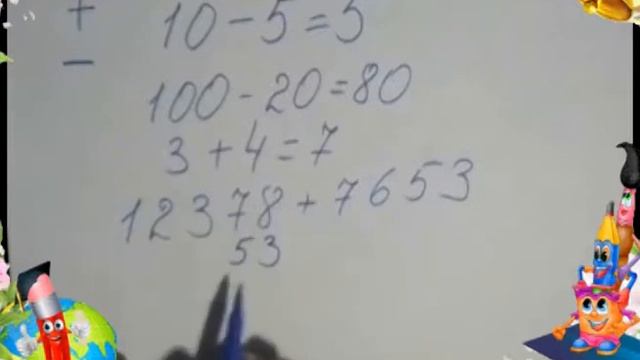 + 10 - 5 = 5
-
100 - 20 = 80
3 + 4 = 7
12378 + 7653
53